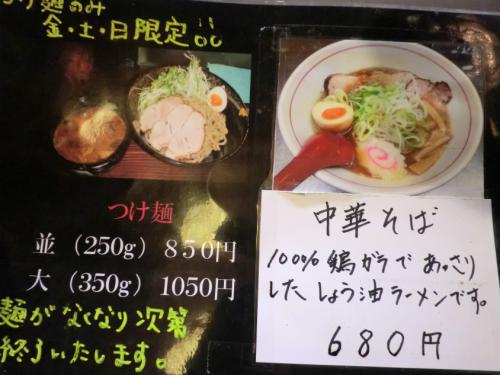 麺のみ
金・土・日限定品
つけ麺
並 (250g) 850円
大 (350g) 1050円
麺がなくなり次第
終了いたします。
中華そば
100%鶏ガラであっさり
したしょう油ラーメンです。
680円